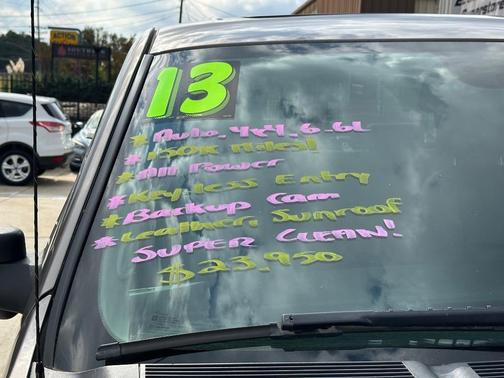 ACTION
13
* Auto, 4x4, 6.6L
* 150K Miles!
* All Power
* Key-less Entry
* Backup Cam
* Leather, Sunroof
* SUPER CLEAN!
$23,950